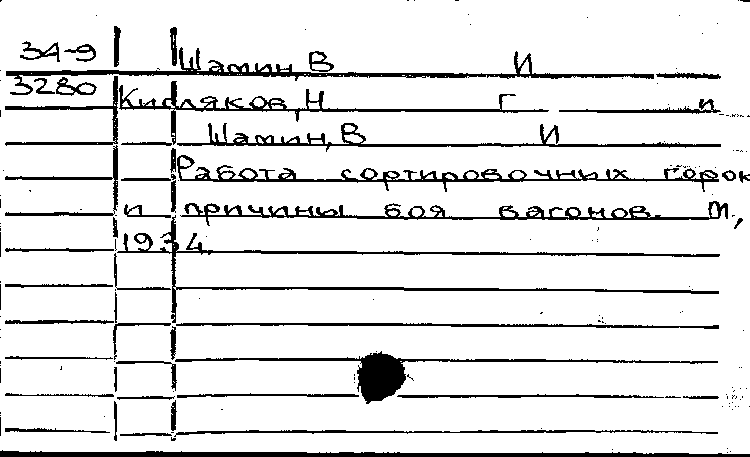 34-9 Шамин, В И
3280 Кисляков, Н Г и
Шамин, В И
Работа сортировочных горок
и причины боя вагонов. М,
1934.